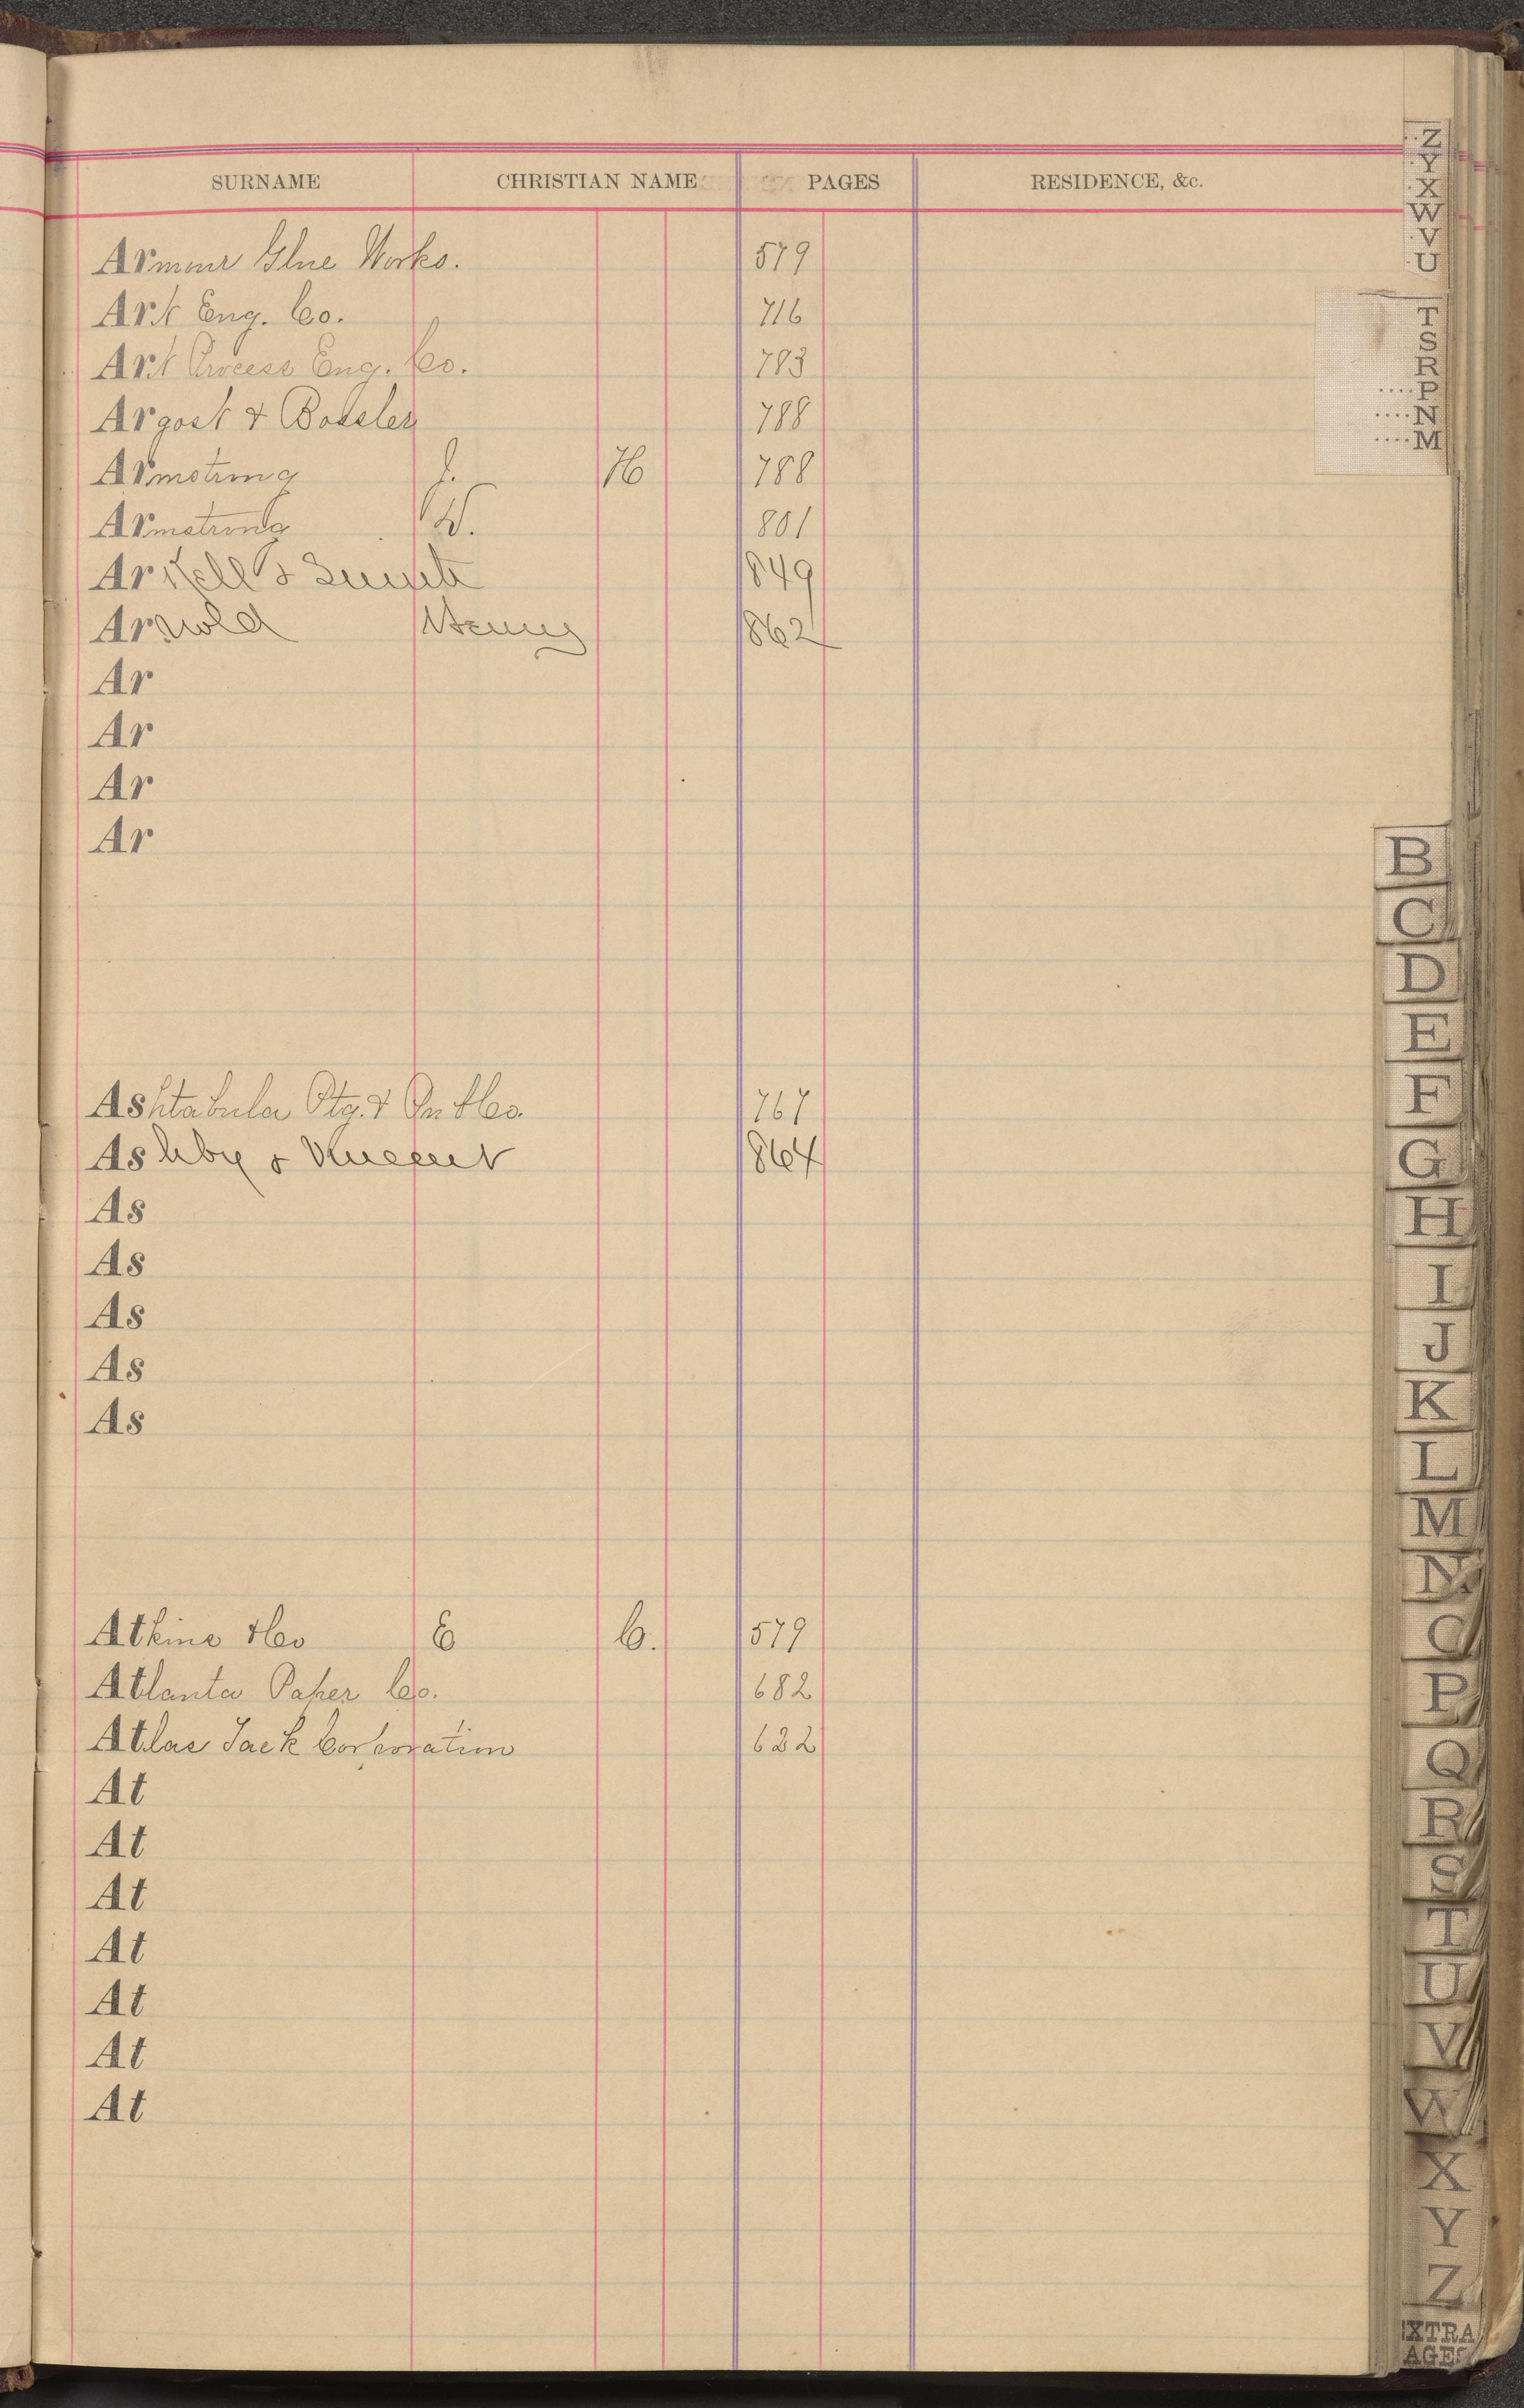 SURNAME CHRISTIAN NAME PAGES RESIDENCE, &c.
Armour Glue Works. 579
Art Eng. Co. 716
Art Process Eng. Co. 783
Argost & Bossler 788
Armstrong J. H 788
Armstrong W. 801
Arkell & Smith 849
Arnold Henry 862
Ar
Ar
Ar
Ar
Ashtabula Ptg. & Co. 767
Ashby & Vincent 864
As
As
As
As
As
Atkins & Co E C. 579
Atlanta Paper Co. 682
Atlas Tack Corporation 682
At
At
At
At
At
At
At
Z
Y
X
W
V
U
T
S
R
P
N
M
B
C
D
E
F
G
H
I
J
K
L
M
N
O
P
Q
R
S
T
U
V
W
X
Y
Z
EXTRA
PAGES